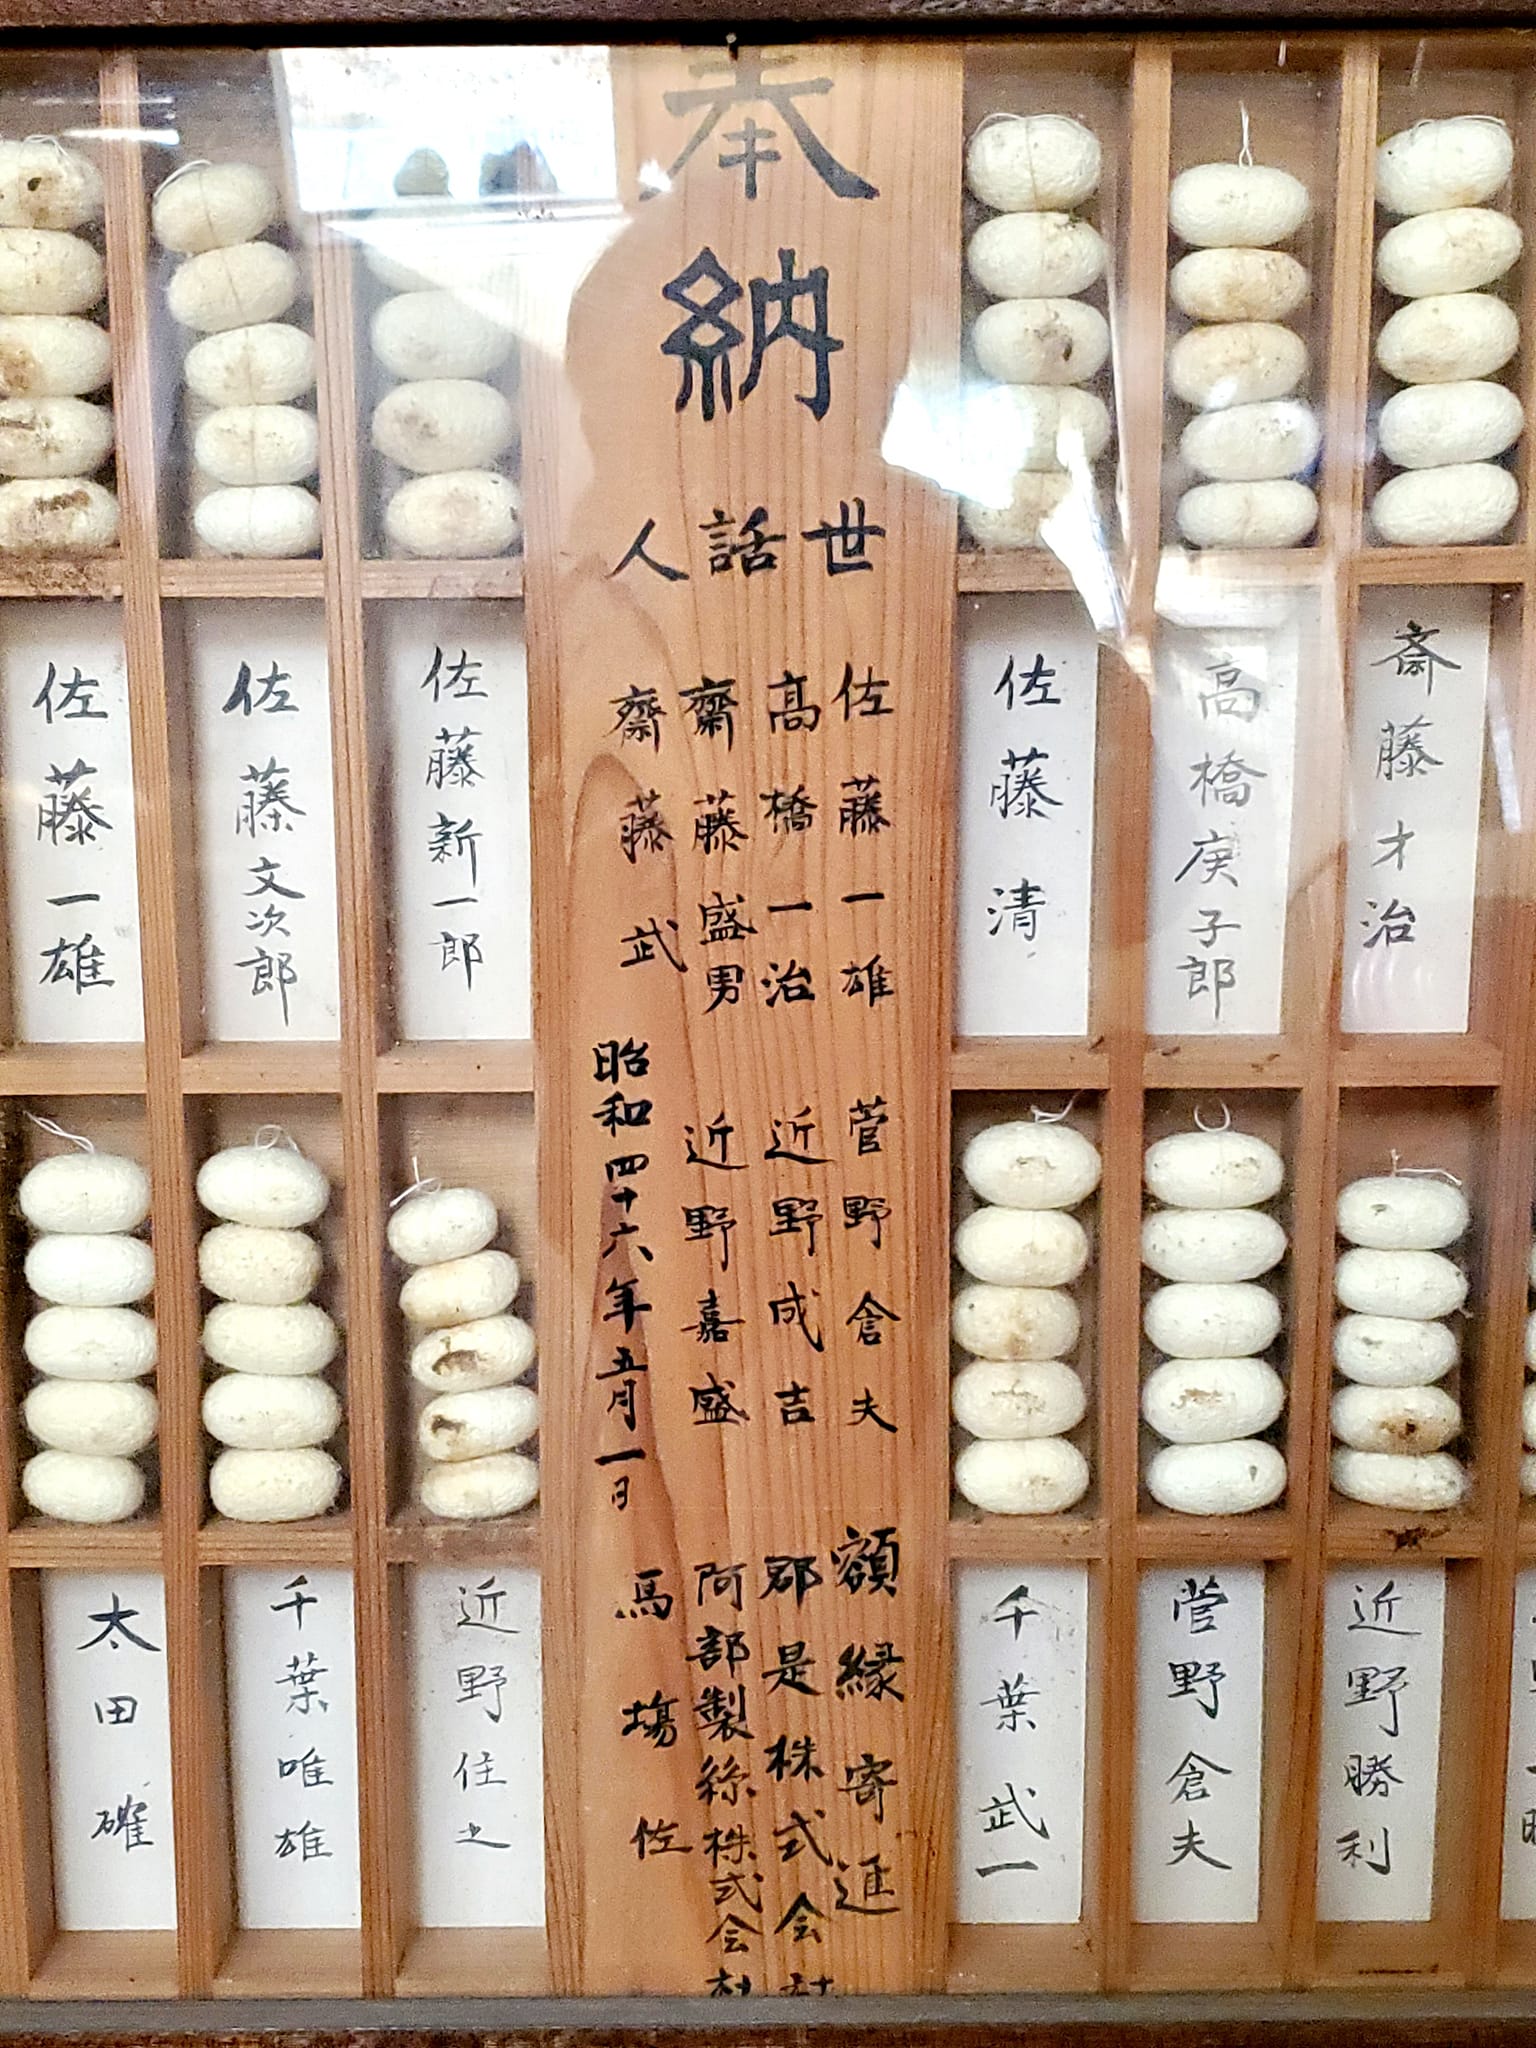 奉納
世話人
佐藤一雄
高橋一治
齋藤盛男
齋藤武
菅野倉夫
近野成吉
近野嘉盛
昭和四十六年五月一日
額縁寄進
郡是株式会社
阿部製絲株式会社
馬場佐
斎藤才治
高橋庚子郎
佐藤清
佐藤新一郎
佐藤文次郎
佐藤一雄
近野勝利
菅野倉夫
千葉武一
近野住之
千葉唯雄
太田確